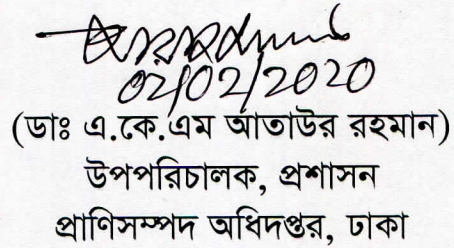 02/02/2020
(ডাঃ এ.কে.এম আতাউর রহমান)
উপপরিচালক, প্রশাসন
প্রাণিসম্পদ অধিদপ্তর, ঢাকা